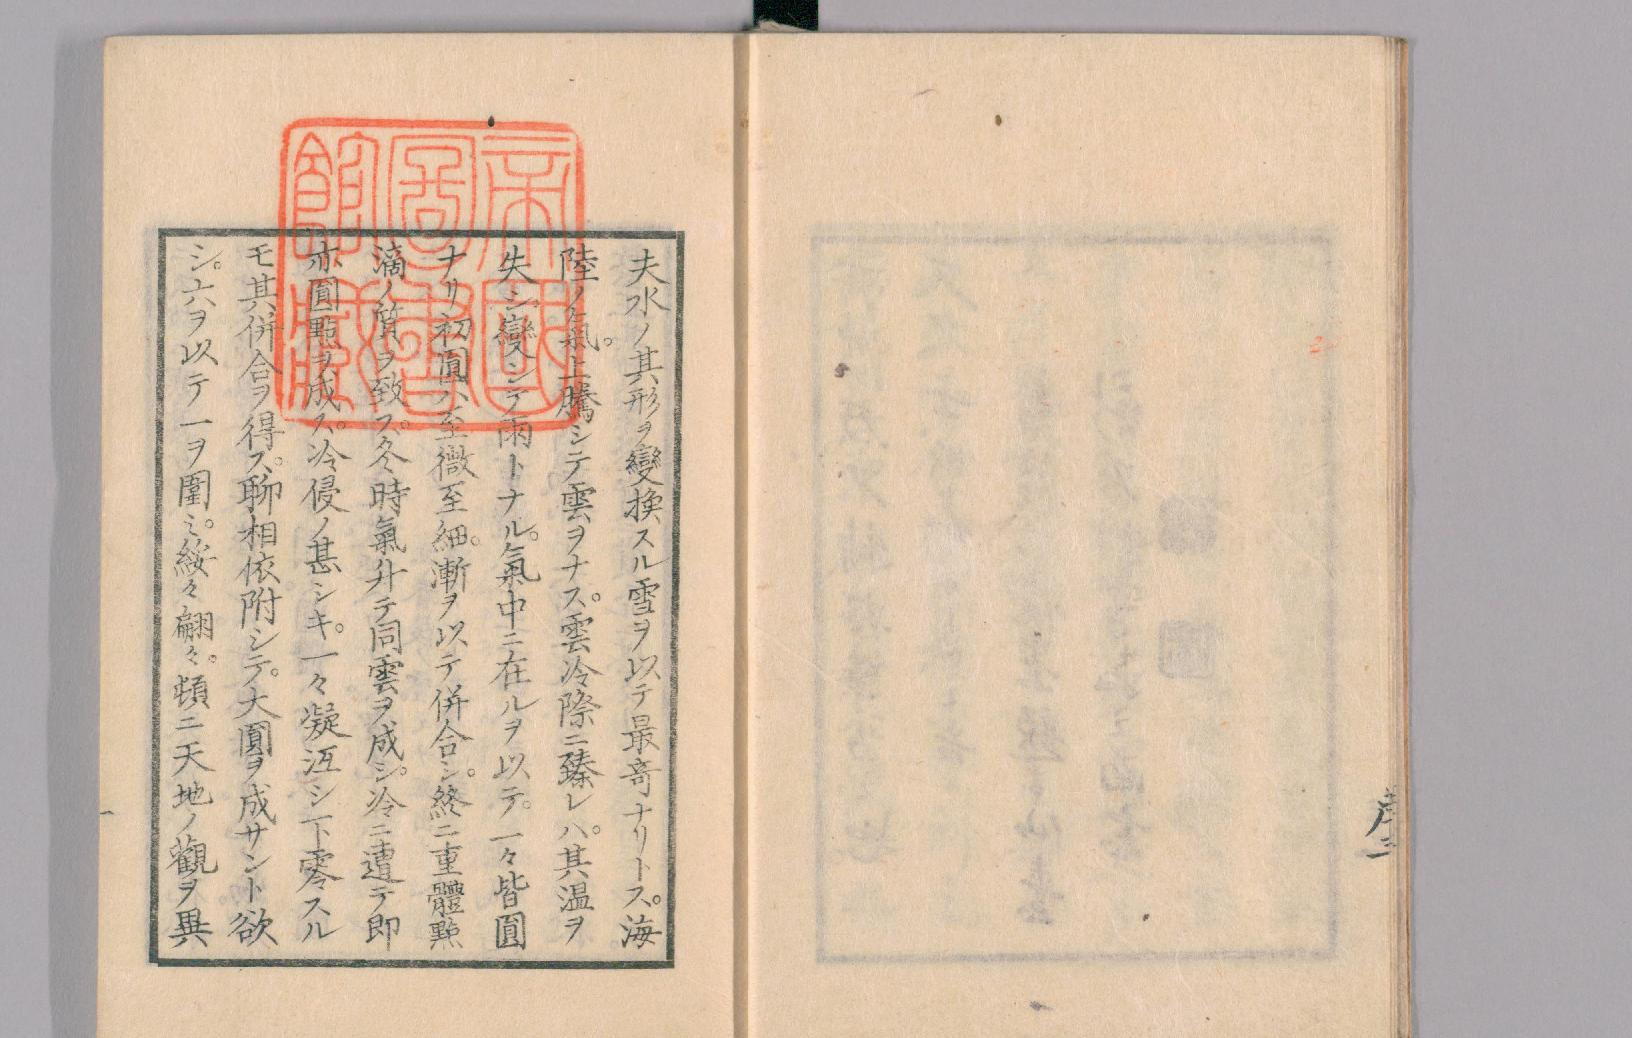 序二
夫水ノ其形ヲ變換スル雪ヲ以テ最奇ナリトス。海
陸ノ氣。上騰シテ雲ヲナス。雲冷際ニ臻レハ。其温ヲ
失シ變シテ雨トナル。氣中ニ在ルヲ以テ。一々皆圓
ナリ初圓ハ至微至細。漸ヲ以テ併合シ。終ニ重體點
滴ノ質ヲ致ス。冬時氣升テ同雲ヲ成シ。冷ニ遭テ即
亦圓點ヲ成ス。冷侵ノ甚シキ。一々凝沍シ下零スル
モ其併合ヲ得ス。聊相依附シテ。大圓ヲ成サント欲
シ。六ヲ以テ一ヲ圍ミ。綏々翩々。頓ニ天地ノ觀ヲ異
帝國
圖書
館藏